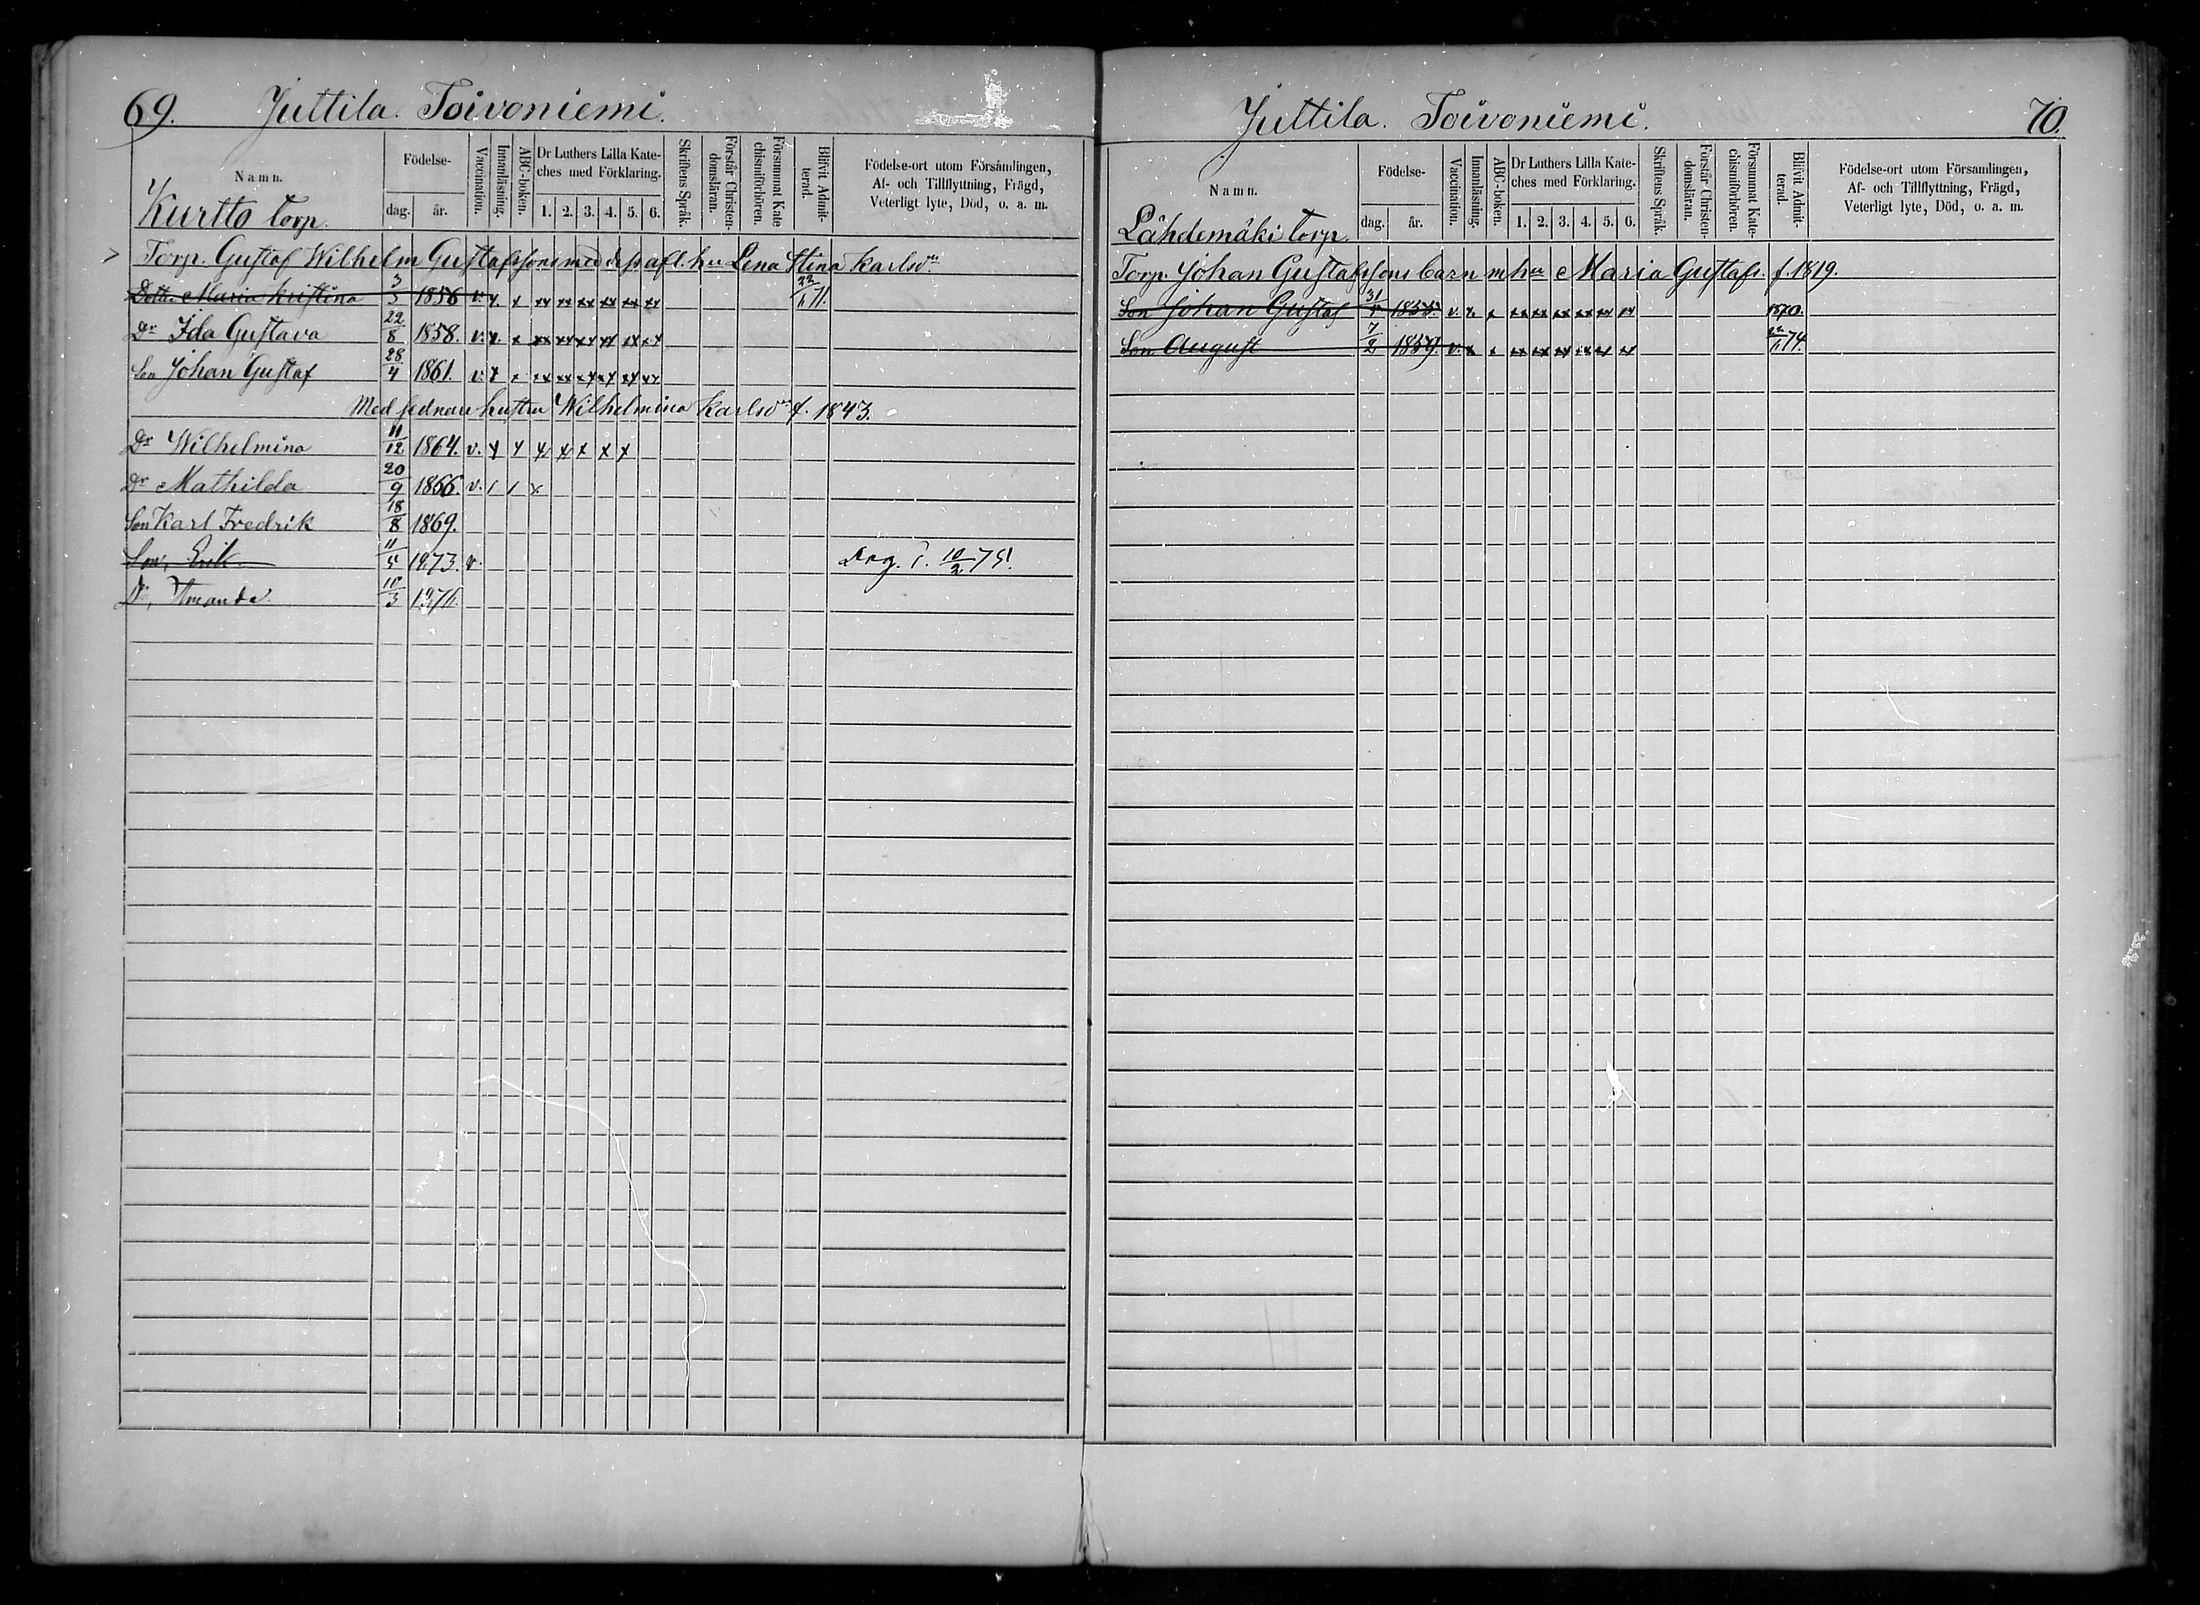 69. Juttila. Toivoniemi.
Namn.
Födelse-
dag. år.
Vaccination.
Innanläsning.
ABC-boken.
Dr Luthers Lilla Kate-
ches med Förklaring.
1. 2. 3. 4. 5. 6.
Skriftens Språk.
Förstår Christen-
domsläran.
Försummat Kate
chismiförhören.
Blifvit Admit-
terad.
Födelse-ort utom Församlingen,
Af- och Tillflyttning, Frägd,
Veterligt lyte, Död, o. a. m.
Kurtto torp.
Torp. Gustaf Wilhelm Gustafssons med dess afl. hu Lena Stina Karlsdr
Dottr Maria Kristina 3/3 1856 v. x x xx xx xx xx xx xx 71.
Dr Ida Gustava 22/8 1858. v. x. x xx xx xx xx xx xx
Son Johan Gustaf 28/4 1861. v. x x xx xx xx xx xx xx
Med sednare hustru Wilhelmina Karlsdr f. 1843.
Dr Wilhelmina 11/12 1864. v. x x x x x x x
Dr Mathilda 20/9 1866. v. / / x
Son Karl Fredrik 18/8 1869.
Son, Erik 11/5 1873. v. 10/2 75.
Dr, Amanda. 10/3 1876.
Juttila. Toivoniemi. 70.
Namn.
Födelse-
dag. år.
Vaccination.
Innanläsning.
ABC-boken.
Dr Luthers Lilla Kate-
ches med Förklaring.
1. 2. 3. 4. 5. 6.
Skriftens Språk.
Förstår Christen-
domsläran.
Försummat Kate-
chismiförhören.
Blifvit Admit-
terad.
Födelse-ort utom Församlingen,
Af- och Tillflyttning, Frägd,
Veterligt lyte, Död, o. a. m.
Lähdemäki torp.
Torp. Johan Gustafssons barn m hu Maria Gustafs. f. 1819.
Son Johan Gustaf 1855. v. x. x xx xx xx xx xx xx 1870.
Son August 7/2 1859. v. x x xx xx xx xx xx xx 74.